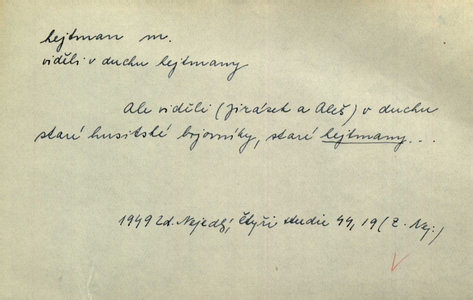 hejtman m.
viděli v duchu hejtmany
Ale viděli (Jirásek a Aleš) v duchu
staré husitské bojovníky, staré hejtmany...
1949 Zd. Nejedlý, Čtyři studie 44, 19 (Z. Nej.)